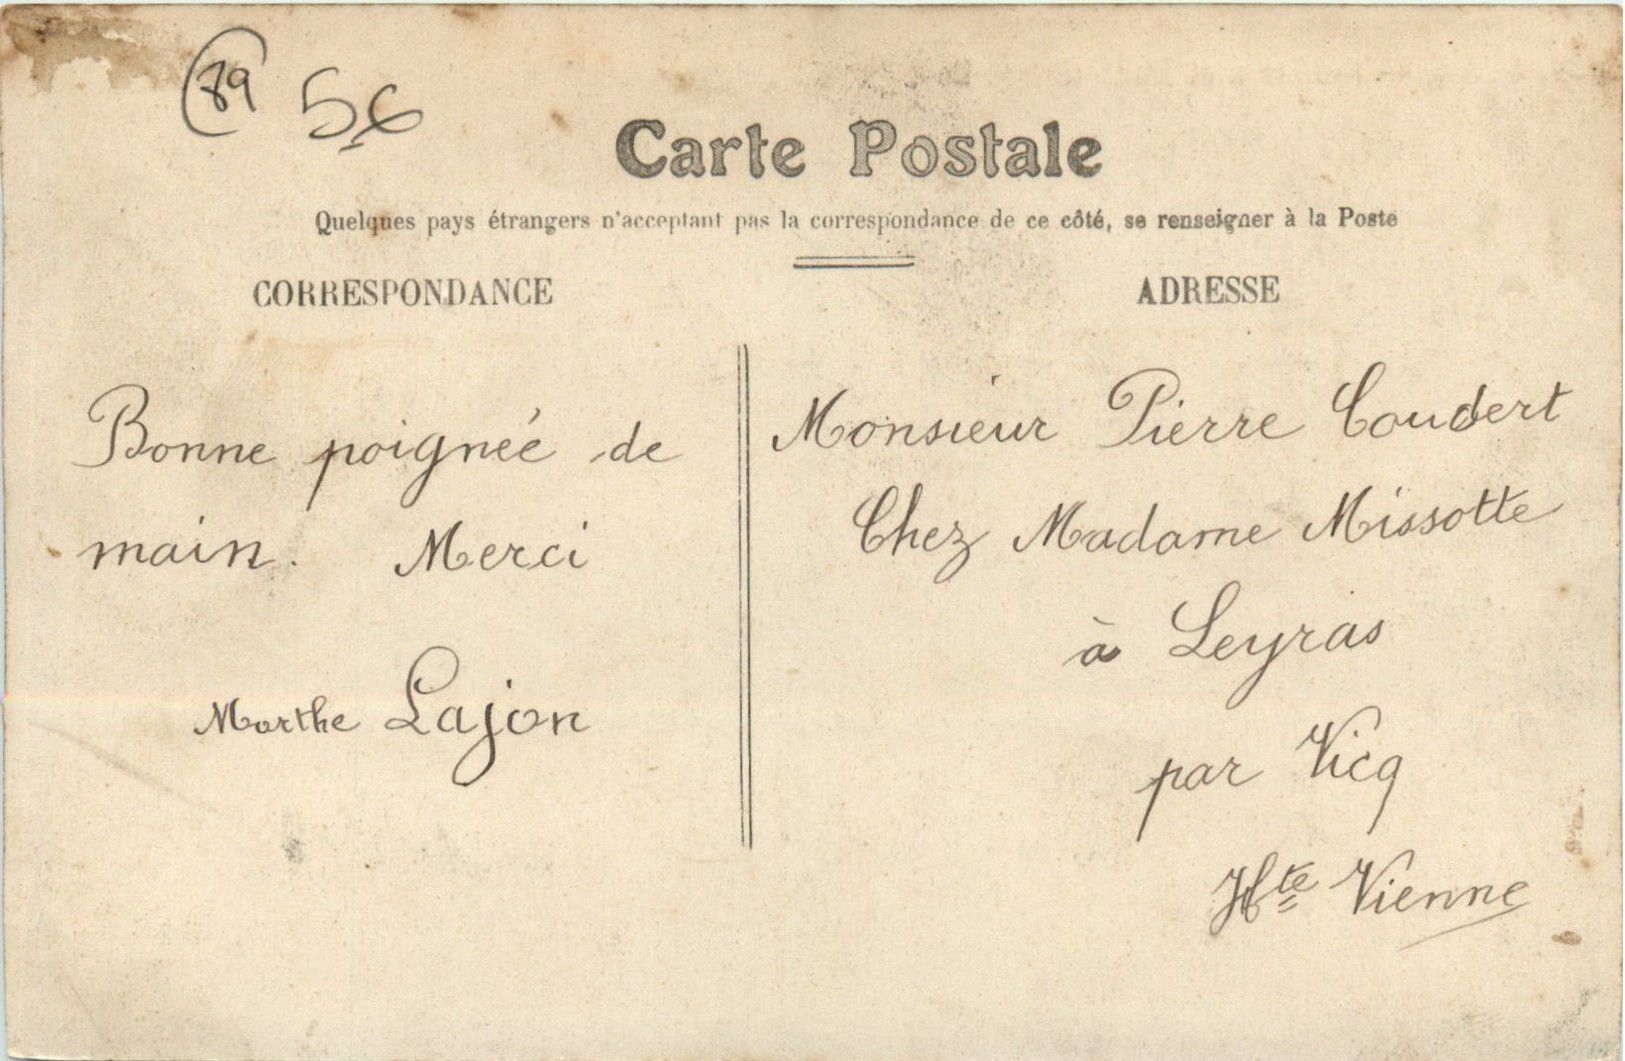 89 56
Carte Postale
Quelques pays étrangers n'acceptant pas la correspondance de ce côté, se renseigner à la Poste
CORRESPONDANCE
Bonne poignée de
main. Merci
Marthe Lajon
ADRESSE
Monsieur Pierre Coudert
Chez Madame Missotte
à Leyras
par Vicq
Hte Vienne